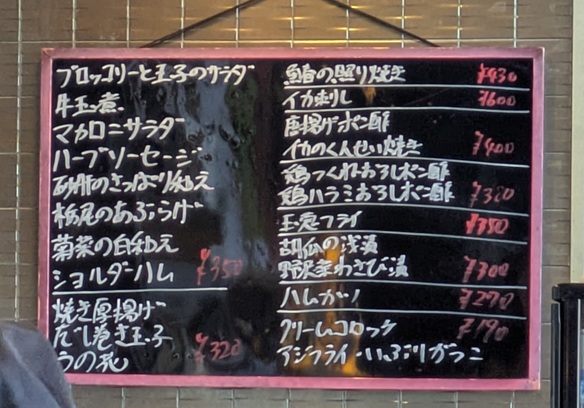 ブロッコリーと玉子のサラダ
牛玉煮
マカロニサラダ
ハーブソーセージ
砂肝のさっぱり和え
栃尾のあぶらげ
菊菜の白和え
ショルダーハム ¥350
焼き厚揚げ
だし巻き玉子
うの花 ¥320
鰆の照り焼き ¥430
イカ刺し ¥600
唐揚げポン酢
イカのくんせい焼き ¥400
鶏つくねおろしポン酢
鶏ハラミおろしポン酢 ¥380
玉葱フライ ¥350
胡瓜の浅漬
野沢菜わさび漬 ¥300
ハムカツ ¥290
クリームコロッケ ¥190
アジフライ・いぶりがっこ